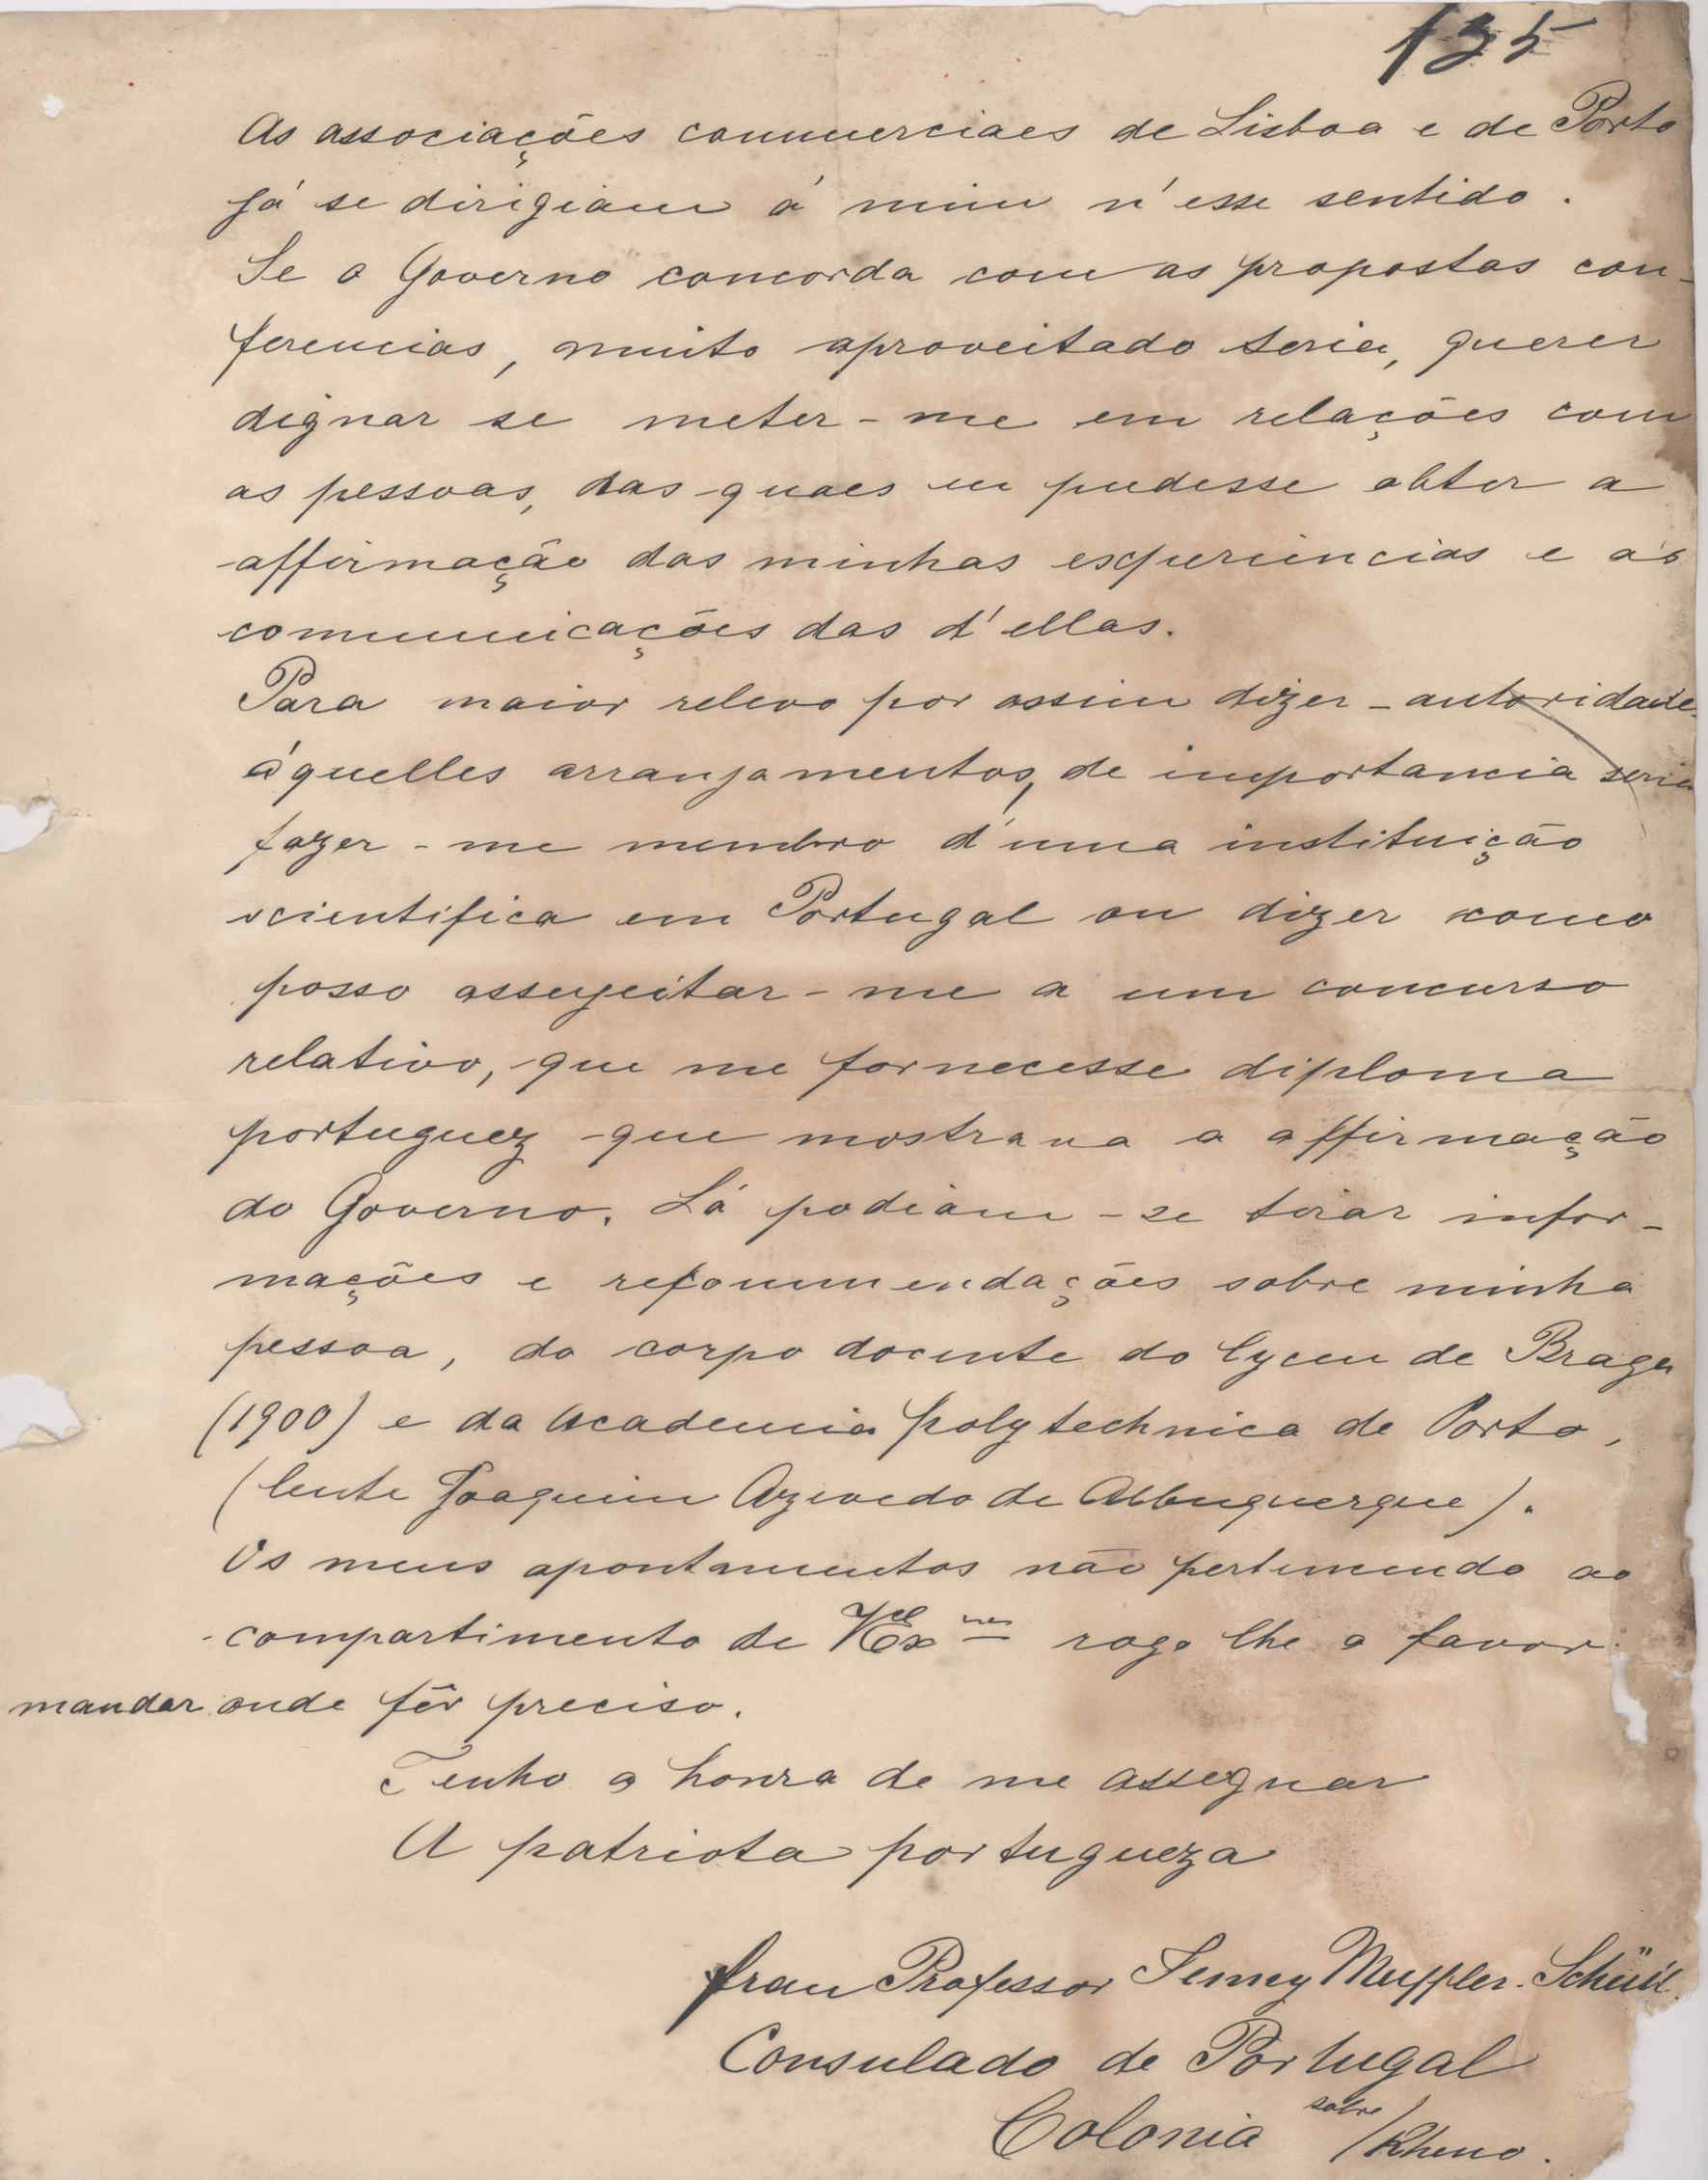 135
As associações commerciaes de Lisboa e de Porto
já se dirigiam á mim n'esse sentido.
Se o Governo concorda com as propostas con-
ferencias, muito aproveitado seria, querer
dignar se meter-me em relações com
as pessoas, das quaes eu pudesse obter a
affirmação das minhas esqueriencias e as
communicações das d'ellas.
Para maior relevo por assim dizer - autoridade
áquelles arranjamentos, de importancia seria
fazer-me membro d'uma instituição
scientifica em Portugal ou dizer como
posso assujeitar-me a um concurso
relativo, que me fornecesse diploma
portuguez que mostrava a affirmação
do Governo. Lá podiam-se tirar infor-
mações e recommendações sobre minha
pessoa, do corpo docente do lyceu de Braga
(1900) e da Academia polytechnica de Porto,
(lente Joaquim Azevedo de Albuquerque).
Os meus apontamentos não pertencendo ao
compartimento de VExmª rogo lhe o favor
mandar onde fôr preciso.
Tenho a honra de me assegnar
A patriota portugueza
frau Professor
Consulado de Portugal
Colonia sobre/Rheno.